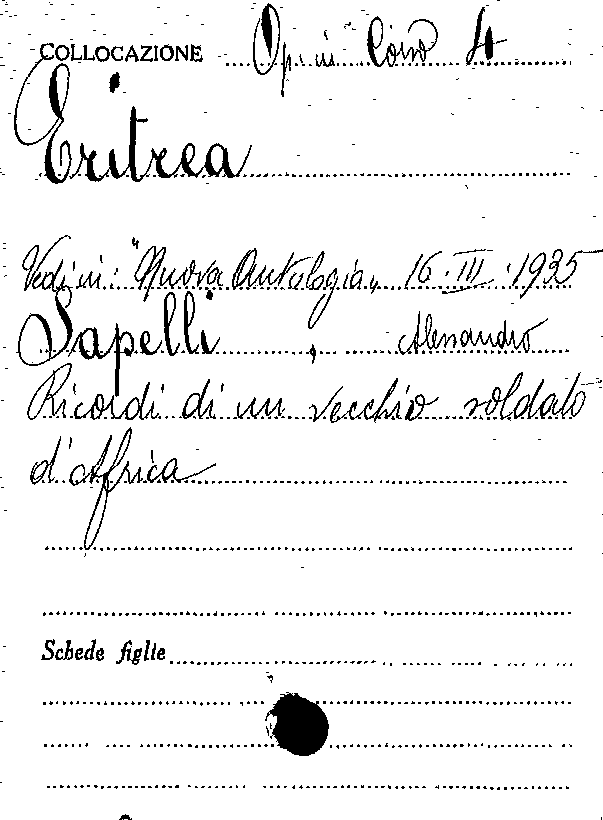 COLLOCAZIONE Op. in Corso 4
Eritrea
Vedi in: "Nuova Antologia„ 16·III·1935
Sapelli, Alessandro
Ricordi di un vecchio soldato
d'Africa
Schede figlie